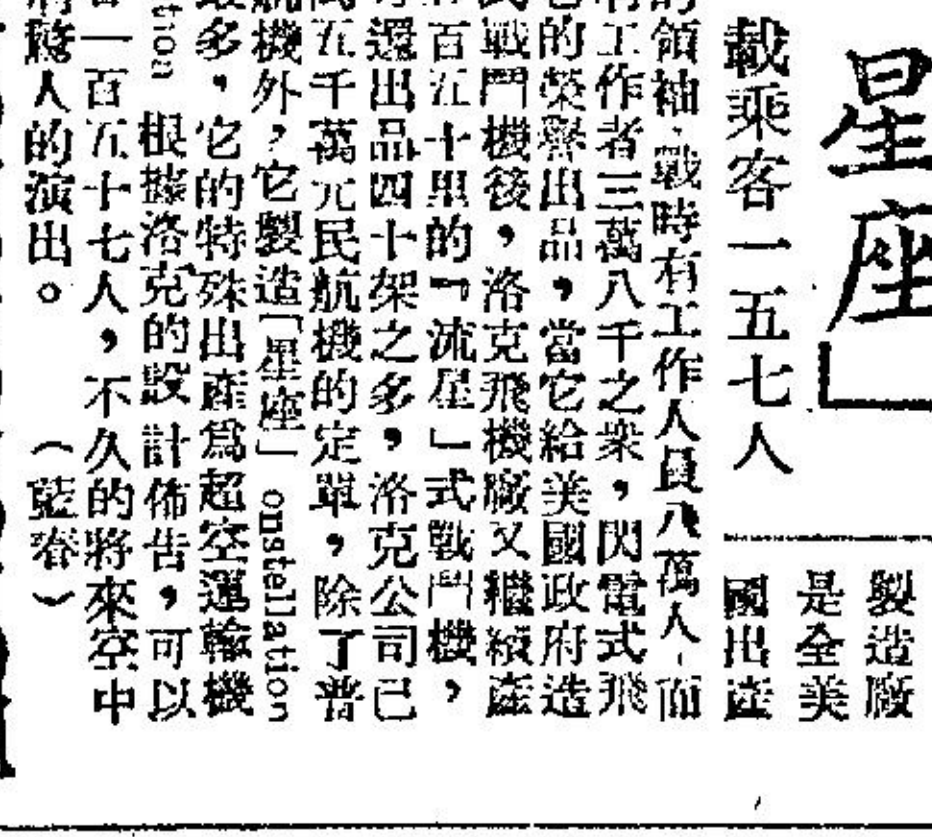 星座」
載乘客一五七人
製造廠
是全美
國出產
的領袖，戰時有工作人員八萬人，而
工作者三萬八千之衆，閃電式飛
的榮譽出品，當它給美國政府造
戰鬥機後，洛克飛機廠又繼續產
百五十里的『流星』式戰鬥機，
還出品四十架之多，洛克公司已
五千萬元民航機的定單，除了普
機外，它製造「星座」onstellation
多，它的特殊出產爲超空運輸機
tion 根據洛克的設計佈告，可以
一百五十七人，不久的將來空中
驚人的演出。　（藍眷）